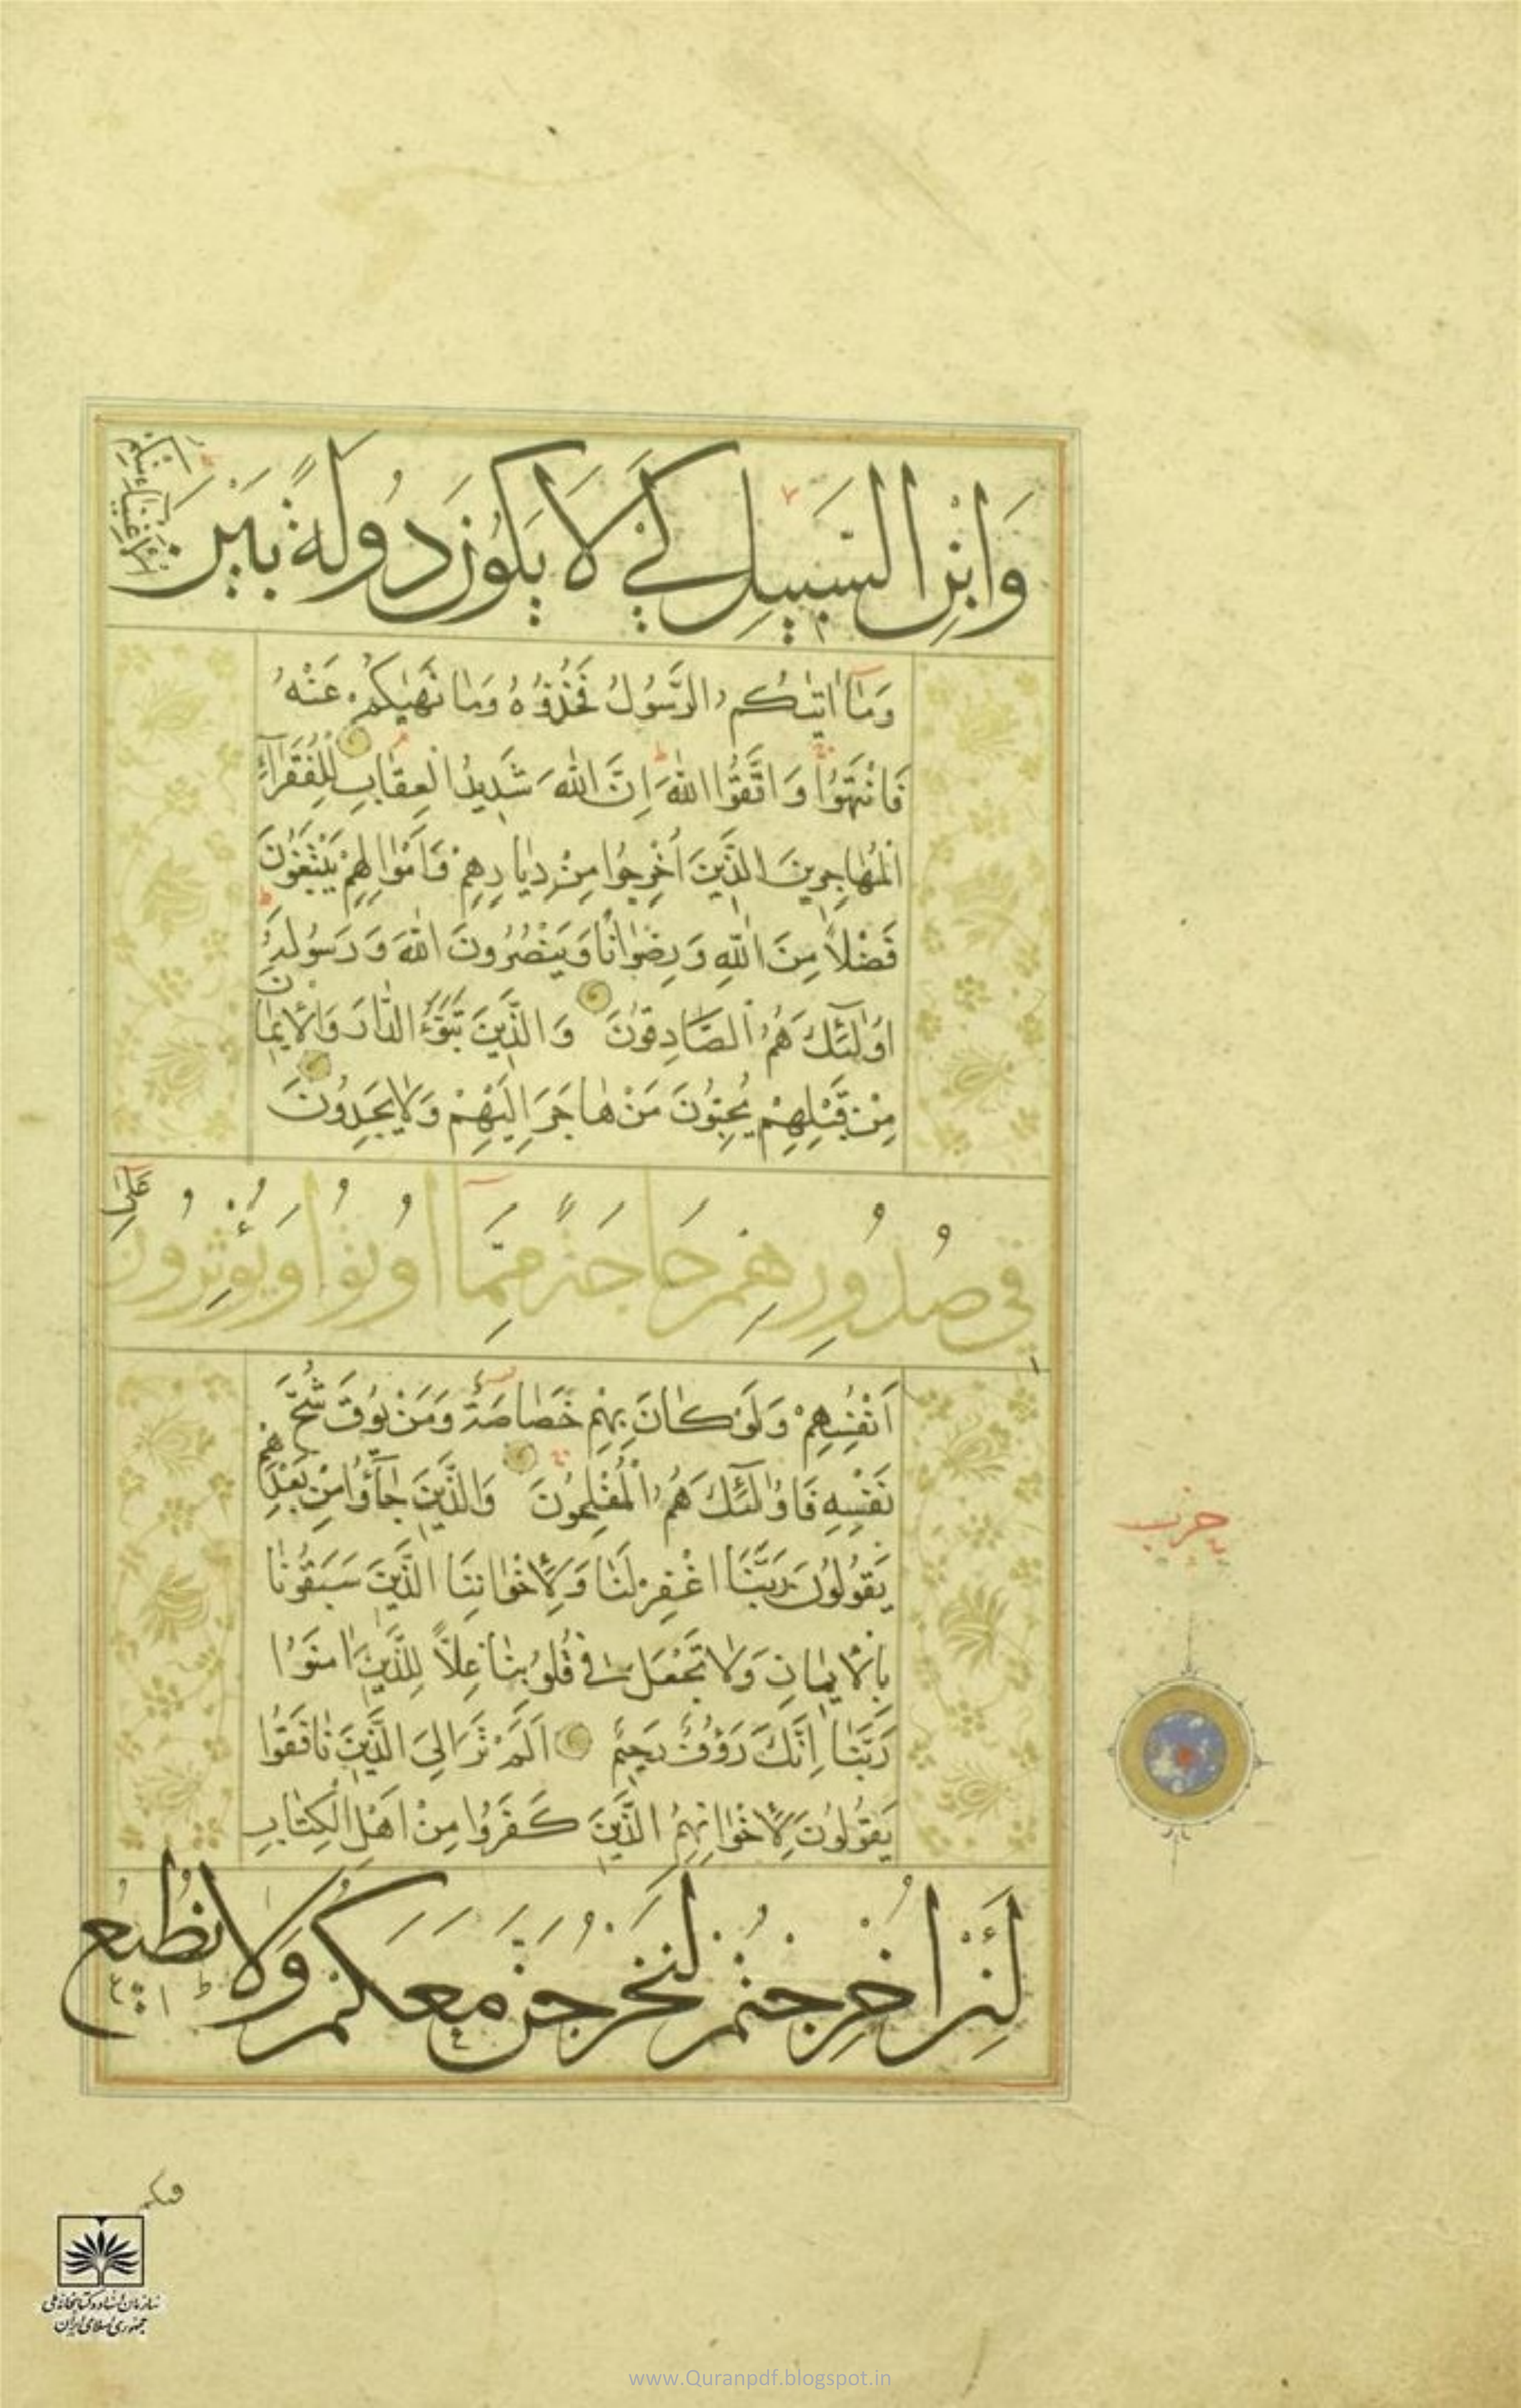 وَابْنِ السَّبِيلِ كَيْ لَا يَكُونَ دُولَةً بَيْنَ
الْأَغْنِيَاءِ مِنْكُمْ
وَمَا اٰتٰيكُمُ الرَّسُولُ فَخُذُوهُ وَمَا نَهٰيكُمْ عَنْهُ
فَانْتَهُوا وَاتَّقُوا اللهَ اِنَّ اللهَ شَدِيدُ الْعِقَابِ لِلْفُقَرَآءِ
الْمُهَاجِرِينَ الَّذِينَ اُخْرِجُوا مِنْ دِيَارِهِمْ وَاَمْوَالِهِمْ يَبْتَغُونَ
فَضْلًا مِنَ اللهِ وَرِضْوَانًا وَيَنْصُرُونَ اللهَ وَرَسُولَهُ
اُولٰئِكَ هُمُ الصَّادِقُونَ وَالَّذِينَ تَبَوَّءُ الدَّارَ وَالْاِيمَانَ
مِنْ قَبْلِهِمْ يُحِبُّونَ مَنْ هَاجَرَ اِلَيْهِمْ وَلَا يَجِدُونَ
فِي صُدُورِهِمْ حَاجَةً مِمَّا اُوتُوا وَيُؤْثِرُونَ عَلٰى
اَنْفُسِهِمْ وَلَوْ كَانَ بِهِمْ خَصَاصَةٌ وَمَنْ يُوقَ شُحَّ
نَفْسِهِ فَاُولٰئِكَ هُمُ الْمُفْلِحُونَ وَالَّذِينَ جَآؤُا مِنْ بَعْدِهِمْ
حزب
يَقُولُونَ رَبَّنَا اغْفِرْ لَنَا وَلِاِخْوَانِنَا الَّذِينَ سَبَقُونَا
بِالْاِيمَانِ وَلَا تَجْعَلْ فِي قُلُوبِنَا غِلًّا لِلَّذِينَ اٰمَنُوا
رَبَّنَا اِنَّكَ رَؤُفٌ رَحِيمٌ اَلَمْ تَرَ اِلَى الَّذِينَ نَافَقُوا
يَقُولُونَ لِاِخْوَانِهِمُ الَّذِينَ كَفَرُوا مِنْ اَهْلِ الْكِتَابِ
لَئِنْ اُخْرِجْتُمْ لَنَخْرُجَنَّ مَعَكُمْ وَلَا نُطِيعُ
فيكم
سازمان اسناد و کتابخانه ملی
جمهوری اسلامی ایران
www.Quranpdf.blogspot.in